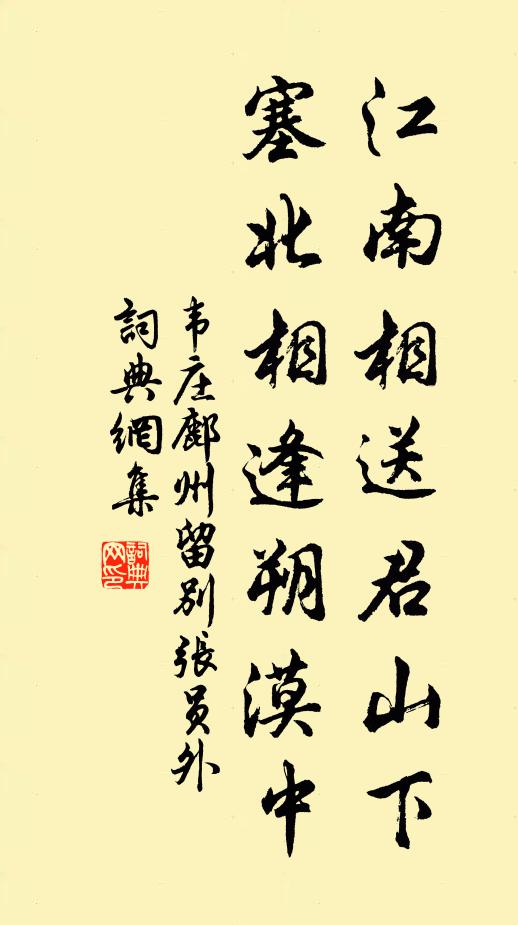 江南相送君山下
塞北相逢朔漠中
韦庄鄜州留别張员外
詞典網集
詞典网印